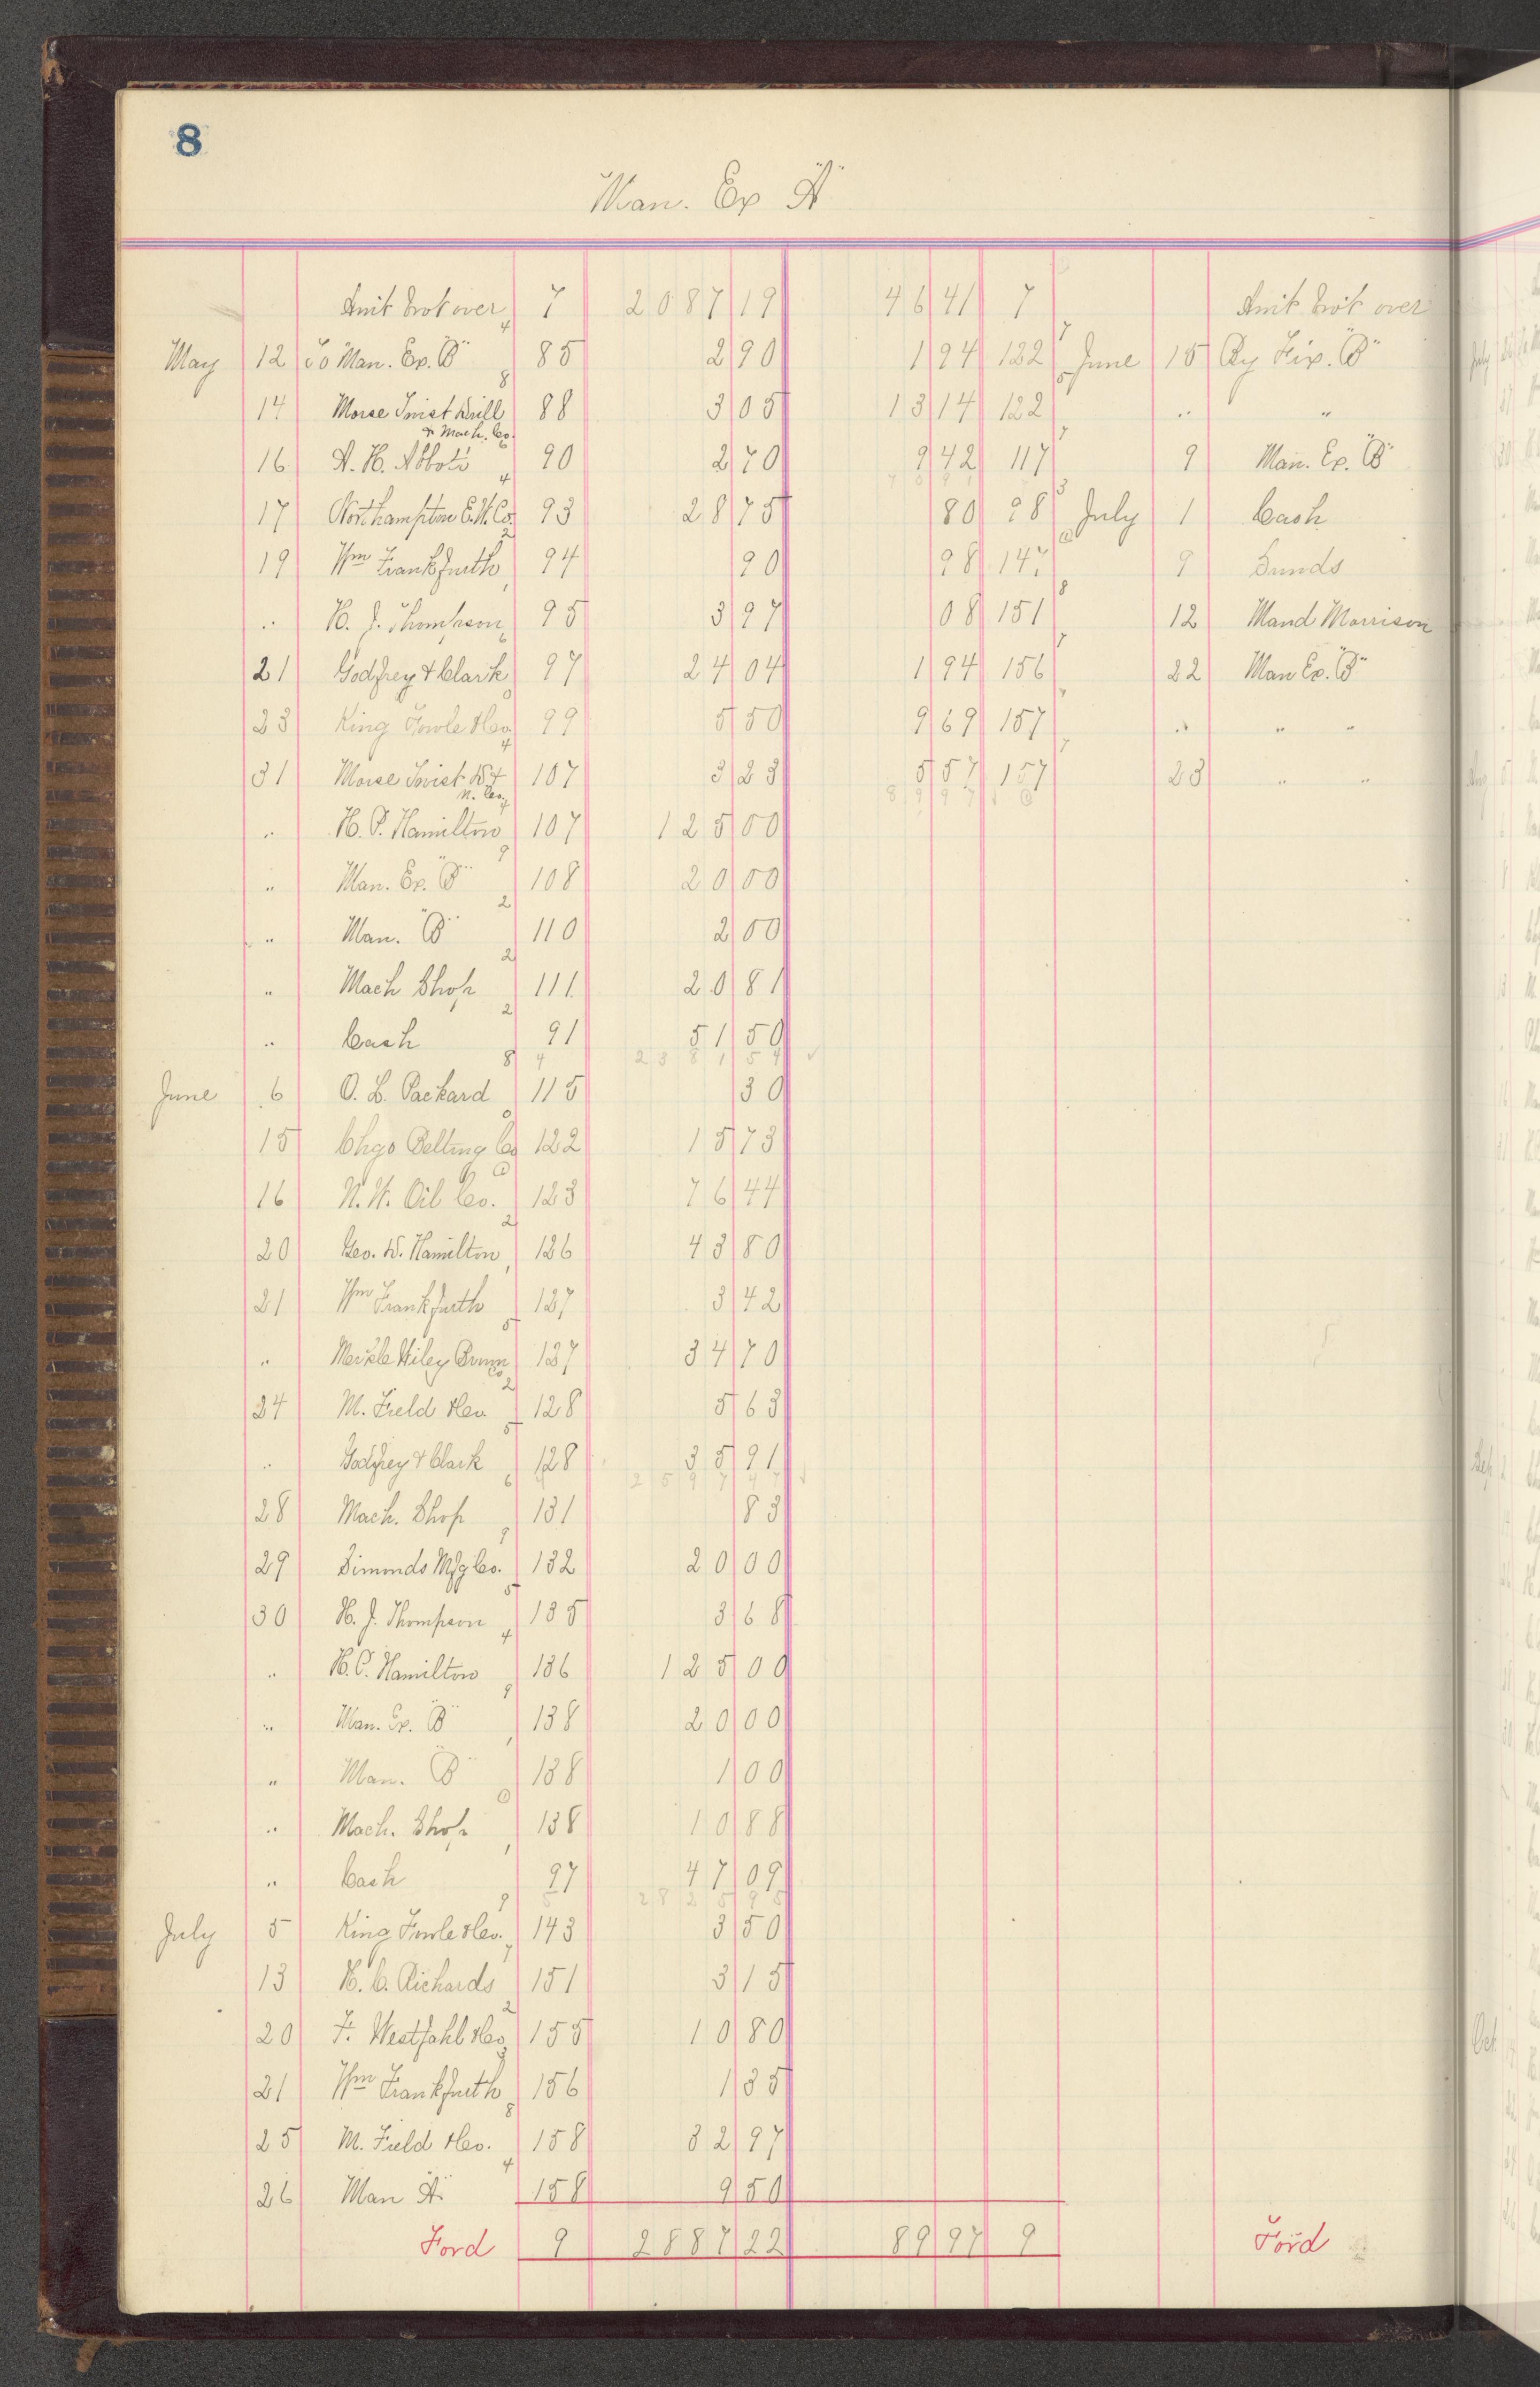 8
Man. Ex "A"
Amt brot over 7 2087 19 46 41 7 Amt brot over
May 12 To Man. Ex. "B" 85 2 90 1 94 122 June 15 By Fix. "B"
14 Morse Twist Drill & Mach. Co. 88 3 05 13 14 122 " "
16 A. H. Abbott 90 2 70 9 42 117 9 Man. Ex. "B"
17 Northampton E.W. Co. 93 28 75 80 98 July 1 Cash
19 Wm Frankfurth 94 90 98 147 9 Sunds
" H. J. Thompson 95 3 97 08 151 12 Mand Morrison
21 Godfrey & Clark 97 24 04 1 94 156 22 Man Ex. "B"
23 King Fowle & Co. 99 5 50 9 69 157 " " "
31 Morse Twist D. & M. Co. 107 3 23 5 57 157 23 " "
89 97
" H. P. Hamilton 107 125 00
" Man. Ex. "B" 108 20 00
" Man. "B" 110 2 00
" Mach Shop 111 20 81
" Cash 91 51 50
2381 54
June 6 O. L. Packard 115 30
15 Chgo Belting Co 122 15 73
16 N. W. Oil Co. 123 76 44
20 Geo. W. Hamilton 126 43 80
21 Wm Frankfurth 127 3 42
" Merkle Wiley Broom Co 127 34 70
24 M. Field & Co. 128 5 63
" Godfrey & Clark 128 35 91
2597 47
28 Mach. Shop 131 83
29 Simonds Mfg Co. 132 20 00
30 H. J. Thompson 135 3 68
" H. P. Hamilton 136 125 00
" Man. Ex. "B" 138 20 00
" Man. "B" 138 1 00
" Mach. Shop 138 10 88
" Cash 97 47 09
2825 95
July 5 King Fowle & Co. 143 3 50
13 H. C. Richards 151 3 15
20 F. Westfahl & Co 155 10 80
21 Wm Frankfurth 156 1 35
25 M. Field & Co. 158 32 97
26 Man "A" 158 9 50
Ford 9 2887 22 89 97 9 Ford